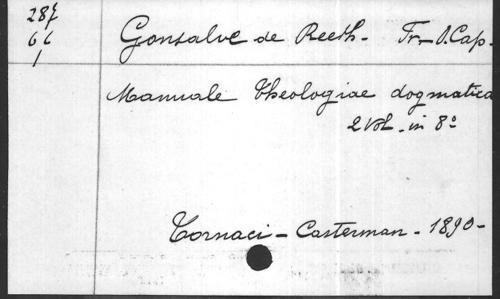 287
66
1
Gonsalve de Reeth - Fr. O. Cap.
Manuale Theologiae dogmatica
2 Vol. in 8°
Tornaci - Casterman - 1890 -